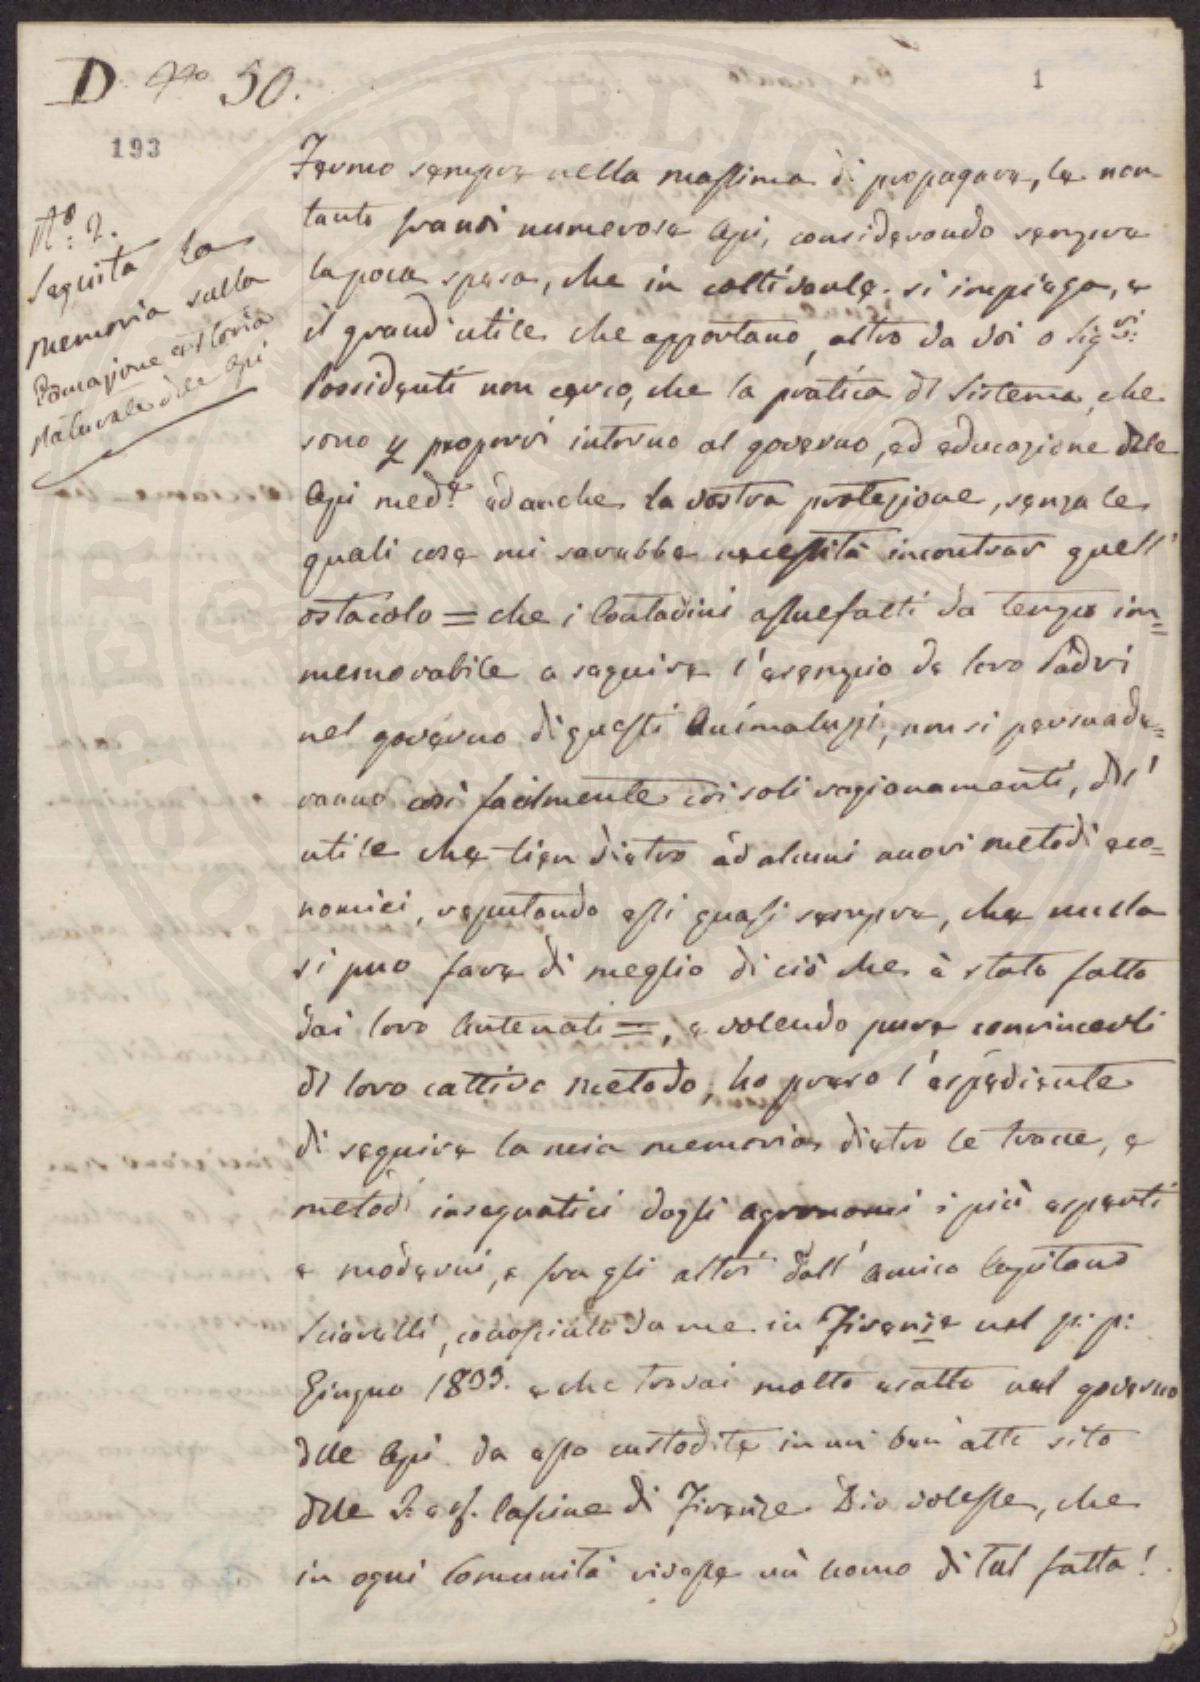 D. No 50.
1
193
N.o: 2.
Seguita la
memoria sulla
Educazione e storia
Naturale delle Api
Fermo sempre nella massima di propagare, le non
tanto fra noi numerose Api, considerando sempre
la poca spesa, che in coltivarle si impiega, e
il grand'utile che apportano, altro da Voi o Sig.ri:
Possidenti non cerco, che la pratica dl Sistema, che
sono p proporvi intorno al governo, ed educazione dlle
Api med.e ed anche la vostra protezione, senza le
quali cose mi sarebbe necessità incontrar quell'
ostacolo = che i Contadini assuefatti da tempo im=
memorabile a seguire l'esempio de loro Padri
nel governo di questi Animaluzzi, non si persuade=
ranno così facilmente coi soli ragionamenti, dll'
utile che tien dietro ad alcuni nuovi metodi eco=
nomici, reputando essi quasi sempre, che nulla
si puo fare di meglio di ciò che è stato fatto
dai loro Antenati =, e volendo pure convincerli
dl loro cattivo metodo, ho preso l'espediente
di seguire la mia memoria dietro le tracce, e
metodi insegnatici dagli agronomi i più esperti
e moderni, e fra gli altri dall'amico Capitano
Sciarelli, conosciuto da me in Firenze nel p: p:
Giugno 1833. e che trovai molto esatto nel governo
dlle Api da esso custodite in un ben atto sito
dlle I. e R. Cascine di Firenze. Dio volesse, che
in ogni Comunità vivesse un uomo di tal fatta!